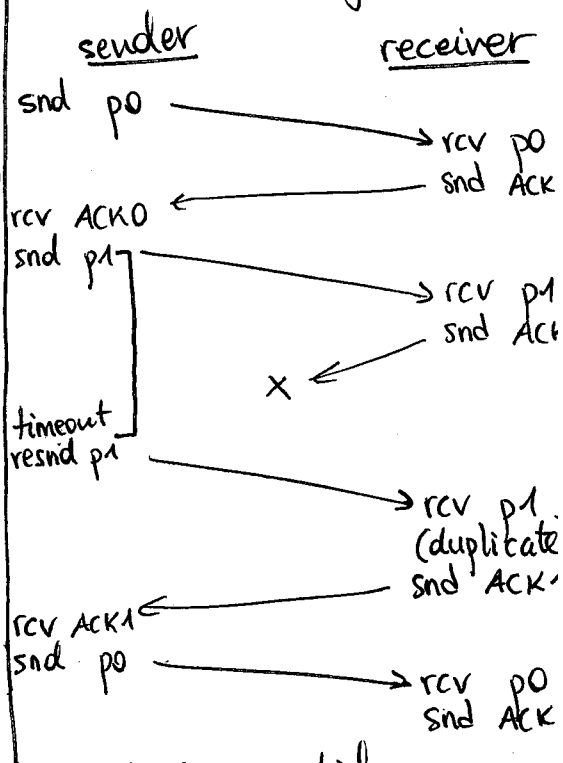 sender
receiver
snd p0
rcv p0
snd ACK
rcv ACK0
snd p1
rcv p1
snd ACK
X
timeout
resnd p1
rcv p1
(duplicate
snd ACK1
rcv ACK1
snd p0
rcv p0
snd ACK